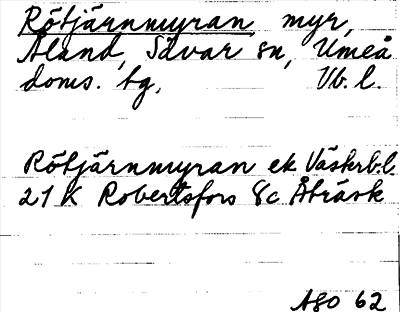 Rötjärnmyran, myr,
Åland, Sävar sn, Umeå
doms. tg, Vb. l.
Rötjärnmyran ek Västerb.l.
21 K Robertsfors 8c Åträsk
ASO 62